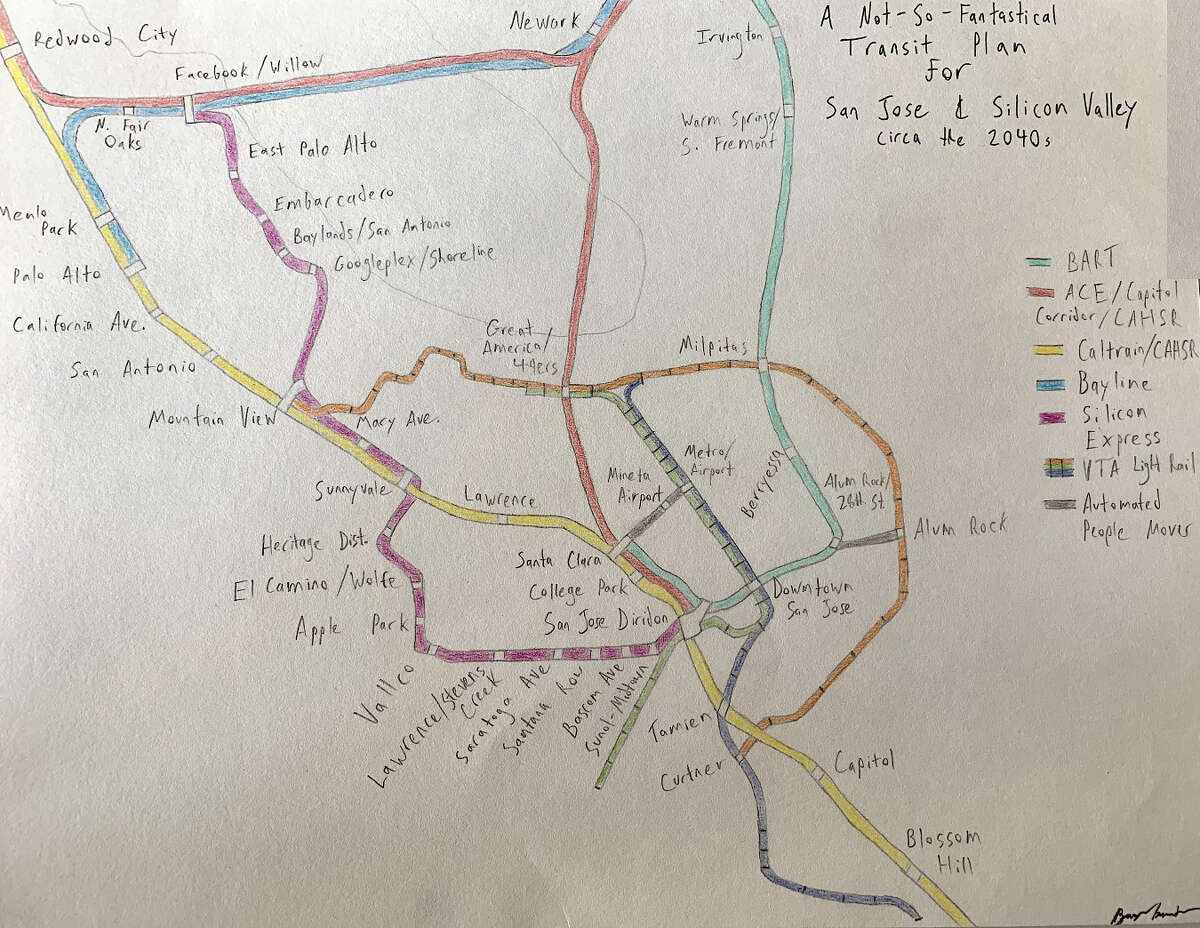 A Not-So-Fantastical
Transit Plan
For
San Jose & Silicon Valley
Circa the 2040s
Redwood City
Newark
Irvington
Facebook/Willow
N. Fair
Oaks
Warm Springs/
S. Fremont
East Palo Alto
Embarcadero
Menlo
Park
Baylands/San Antonio
Googleplex/Shoreline
Palo Alto
California Ave.
San Antonio
Great
America/
49ers
Milpitas
Mountain View
Mary Ave.
Metro/
Airport
Mineta
Airport
Berryessa
Alum Rock/
28th St.
Sunnyvale
Lawrence
Alum Rock
Heritage Dist.
Santa Clara
El Camino/Wolfe
College Park
Downtown
San Jose
Apple Park
San Jose Diridon
Vallco
Lawrence/Stevens
Creek
Saratoga Ave
Santana Row
Bascom Ave
Sunol-Midtown
Tamien
Curtner
Capitol
Blossom
Hill
BART
ACE/Capitol
Corridor/CAHSR
Caltrain/CAHSR
Bayline
Silicon
Express
VTA Light Rail
Automated
People Mover